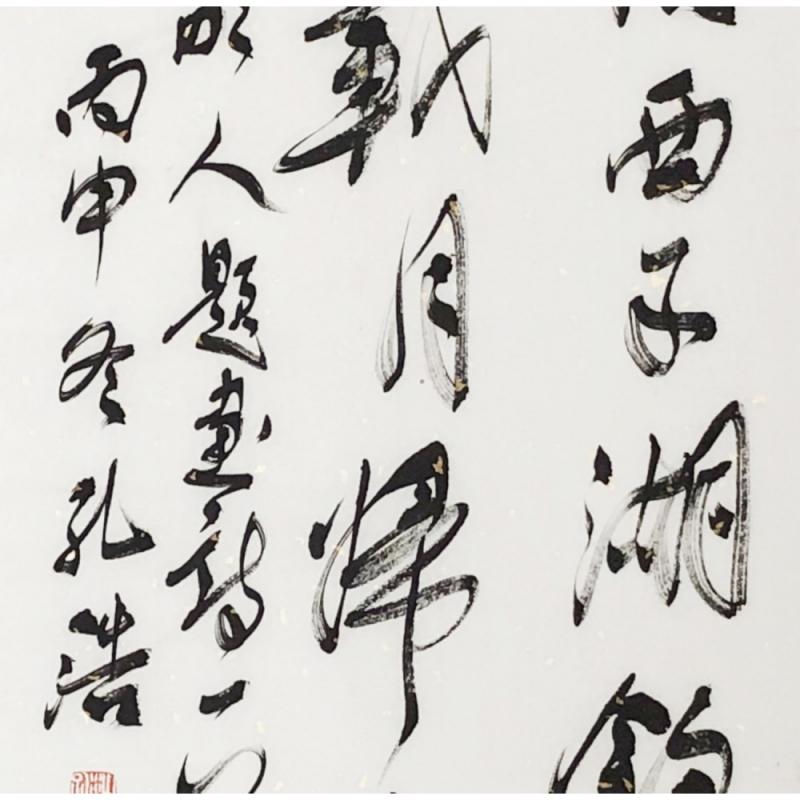 西子湖
載月歸
明人題畫詩一
丙申冬孔浩